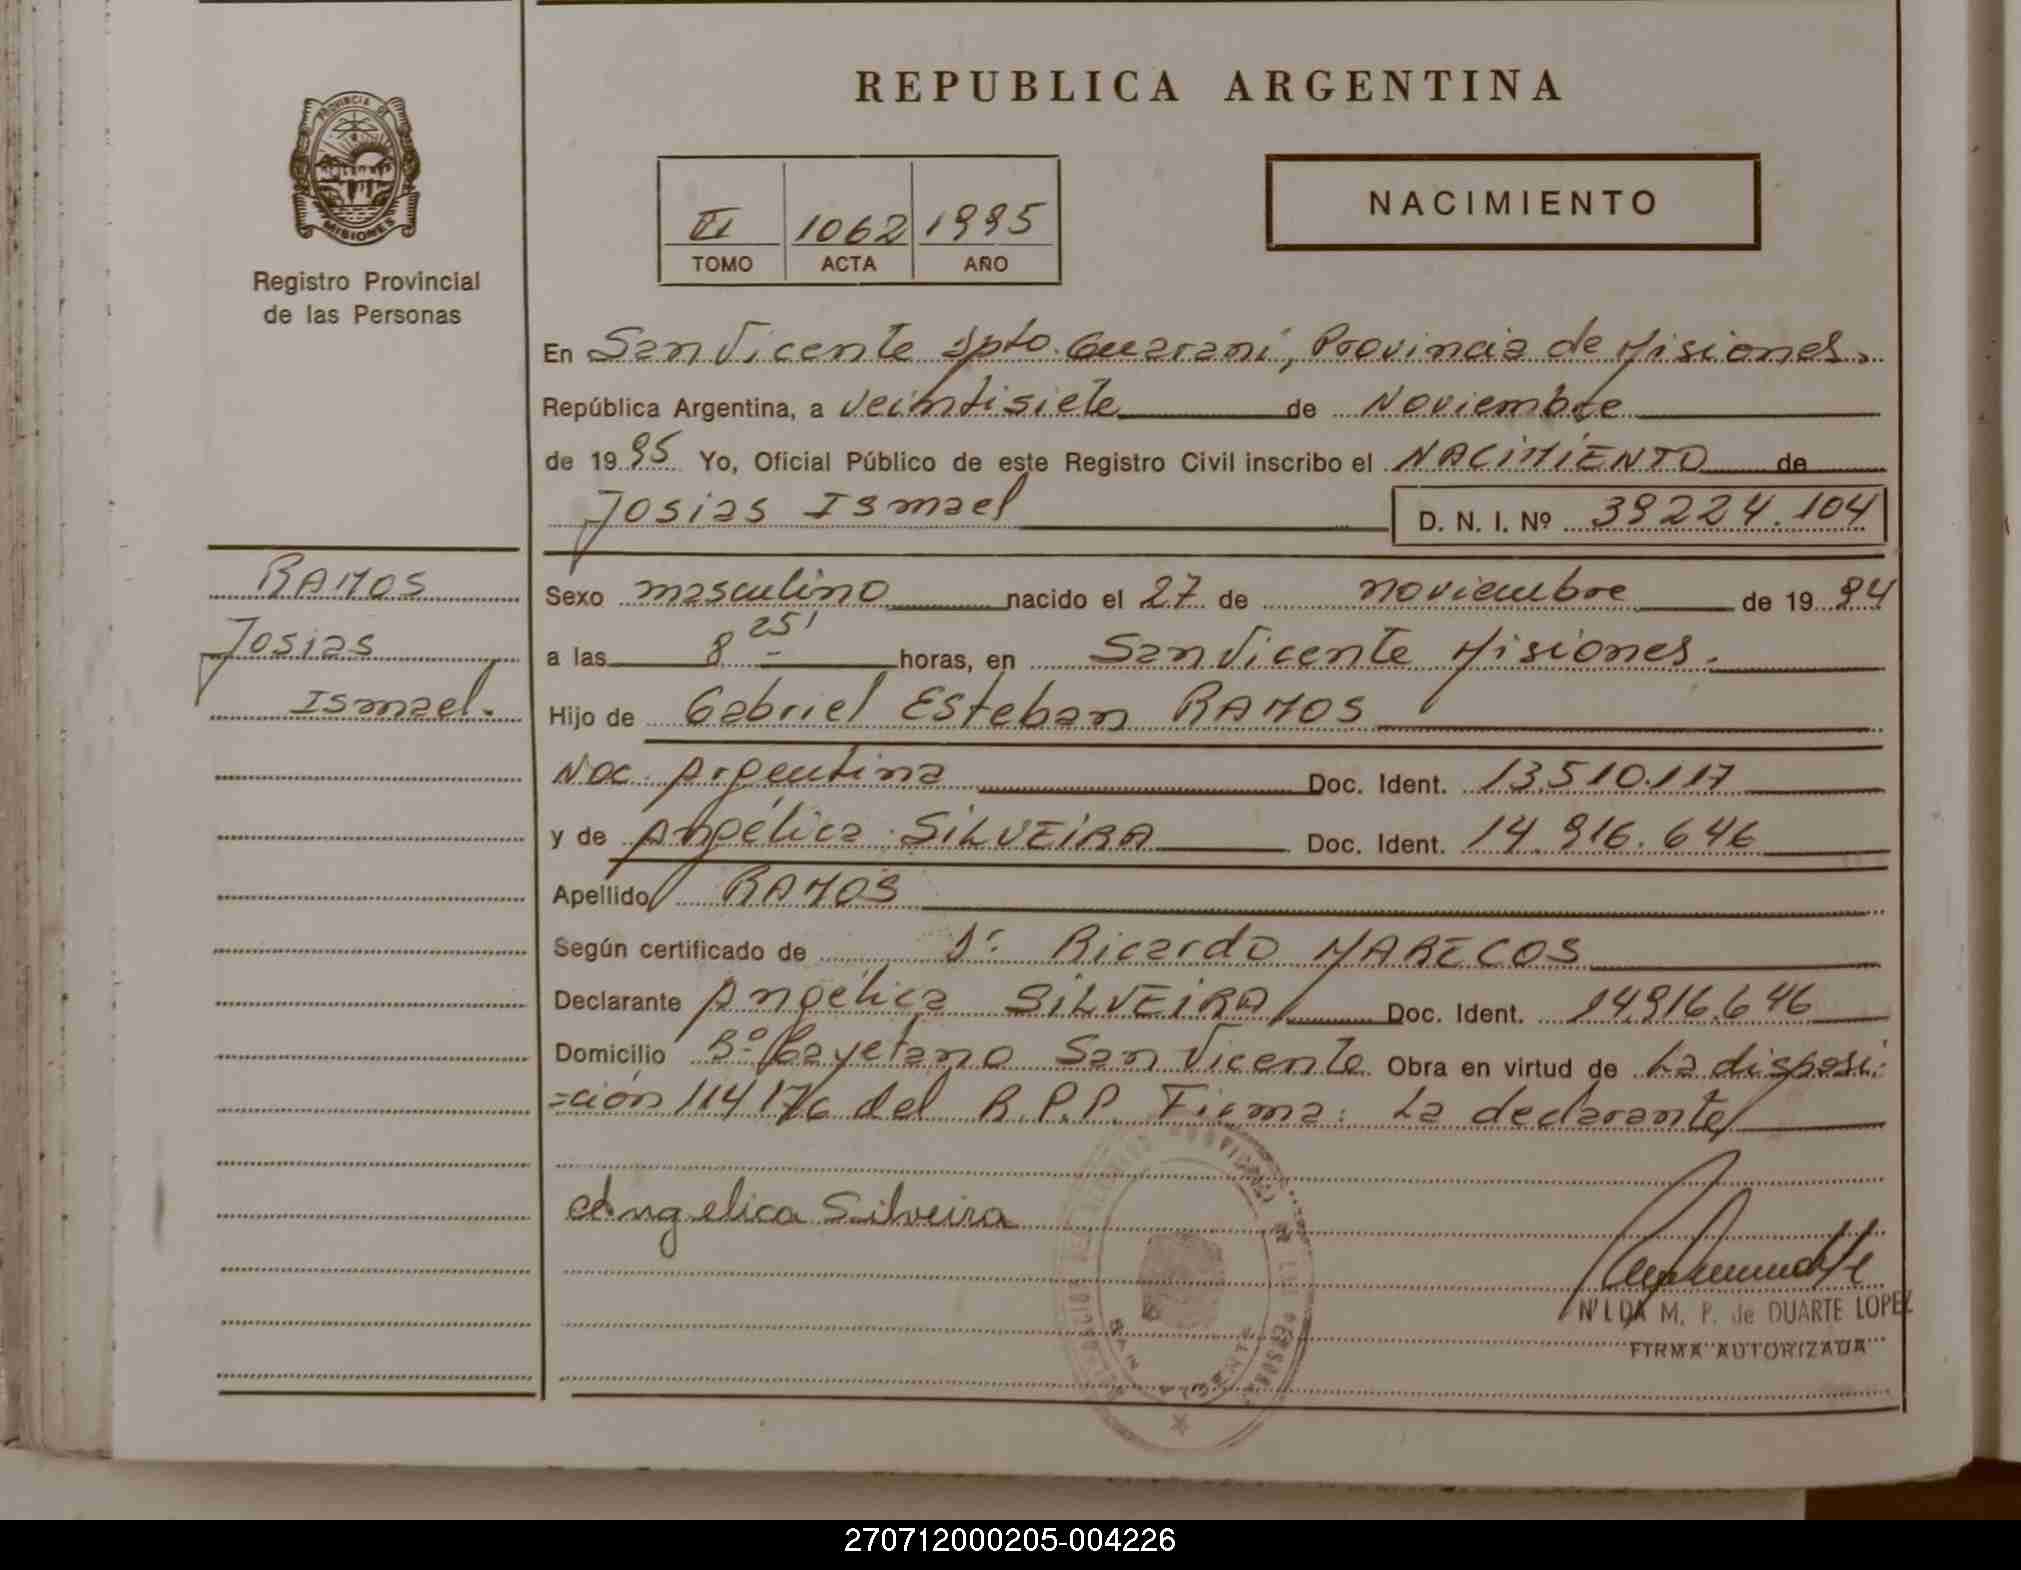 REPUBLICA ARGENTINA
PROVINCIA DE
MISIONES
Registro Provincial
de las Personas
NACIMIENTO
VI 1062 1995
TOMO ACTA AÑO
En San Vicente Dpto. Guaraní, Provincia de Misiones.
República Argentina, a veintisiete de Noviembre
de 1995 Yo, Oficial Público de este Registro Civil inscribo el NACIMIENTO de
Josias Ismael D. N. I. Nº 39224.104
RAMOS
Josias
Ismael.
Sexo masculino nacido el 27 de noviembre de 1994
a las 8 25' horas, en San Vicente Misiones.
Hijo de Gabriel Esteban RAMOS
Nac. Argentina Doc. Ident. 13.510.117
y de Angélica SILVEIRA Doc. Ident. 14.916.646
Apellido RAMOS
Según certificado de Dr. Ricardo MARECOS
Declarante Angélica SILVEIRA Doc. Ident. 14.916.646
Domicilio Bº Cayetano San Vicente Obra en virtud de La disposi=
=ción 114 176 del R.P.P. Firma: La declarante
Angelica Silveira
NILDA M. P. de DUARTE LOPEZ
FIRMA AUTORIZADA
270712000205-004226